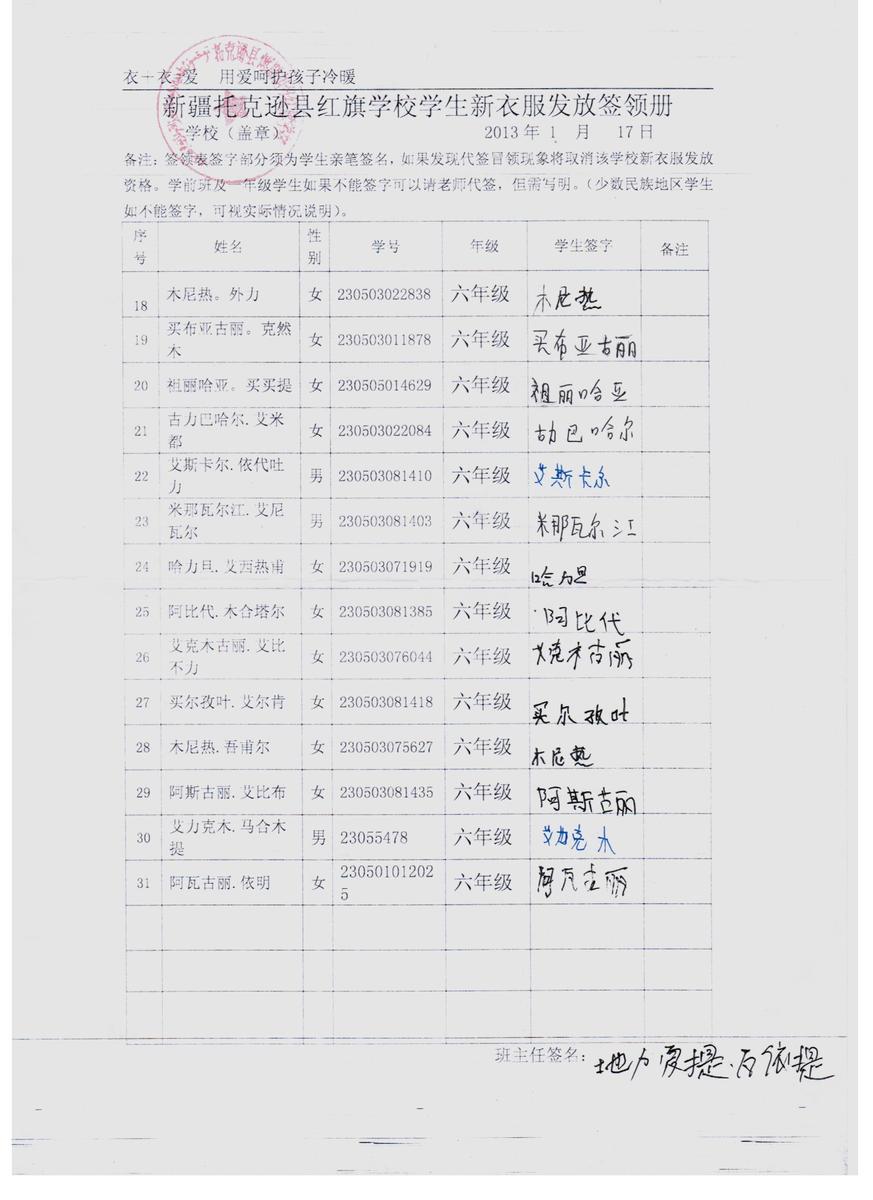 衣+衣=爱　用爱呵护孩子冷暖
新疆托克逊县红旗学校学生新衣服发放签领册
学校（盖章） 2013年 1 月 17日
备注：签领表签字部分须为学生亲笔签名，如果发现代签冒领现象将取消该学校新衣服发放
资格。学前班及一年级学生如果不能签字可以请老师代签，但需写明。（少数民族地区学生
如不能签字，可视实际情况说明）。
序号 姓名 性别 学号 年级 学生签字 备注
18 木尼热。外力 女 230503022838 六年级 木尼热
19 买布亚古丽。克然木 女 230503011878 六年级 买布亚古丽
20 祖丽哈亚。买买提 女 230505014629 六年级 祖丽哈亚
21 古力巴哈尔.艾米都 女 230503022084 六年级 古力巴哈尔
22 艾斯卡尔.依代吐力 男 230503081410 六年级 艾斯卡尔
23 米那瓦尔江.艾尼瓦尔 男 230503081403 六年级 米那瓦尔江
24 哈力旦.艾西热甫 女 230503071919 六年级 哈力旦
25 阿比代.木合塔尔 女 230503081385 六年级 阿比代
26 艾克木古丽.艾比不力 女 230503076044 六年级 艾克木古丽
27 买尔孜叶.艾尔肯 女 230503081418 六年级 买尔孜叶
28 木尼热.吾甫尔 女 230503075627 六年级 木尼热
29 阿斯古丽.艾比布 女 230503081435 六年级 阿斯古丽
30 艾力克木.马合木提 男 23055478 六年级 艾力克木
31 阿瓦古丽.依明 女 230501012025 六年级 阿瓦古丽
班主任签名：地力夏提.瓦依提